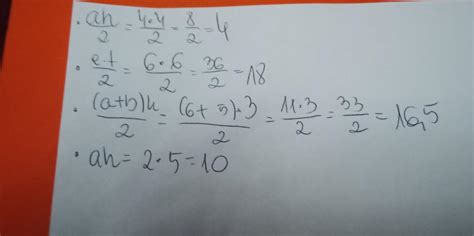 · ah/2 = 4·4/2 = 8/2 = 4
· e·f/2 = 6·6/2 = 36/2 = 18
· (a+b)h/2 = (6+5)·3/2 = 11·3/2 = 33/2 = 16,5
· ah = 2·5 = 10